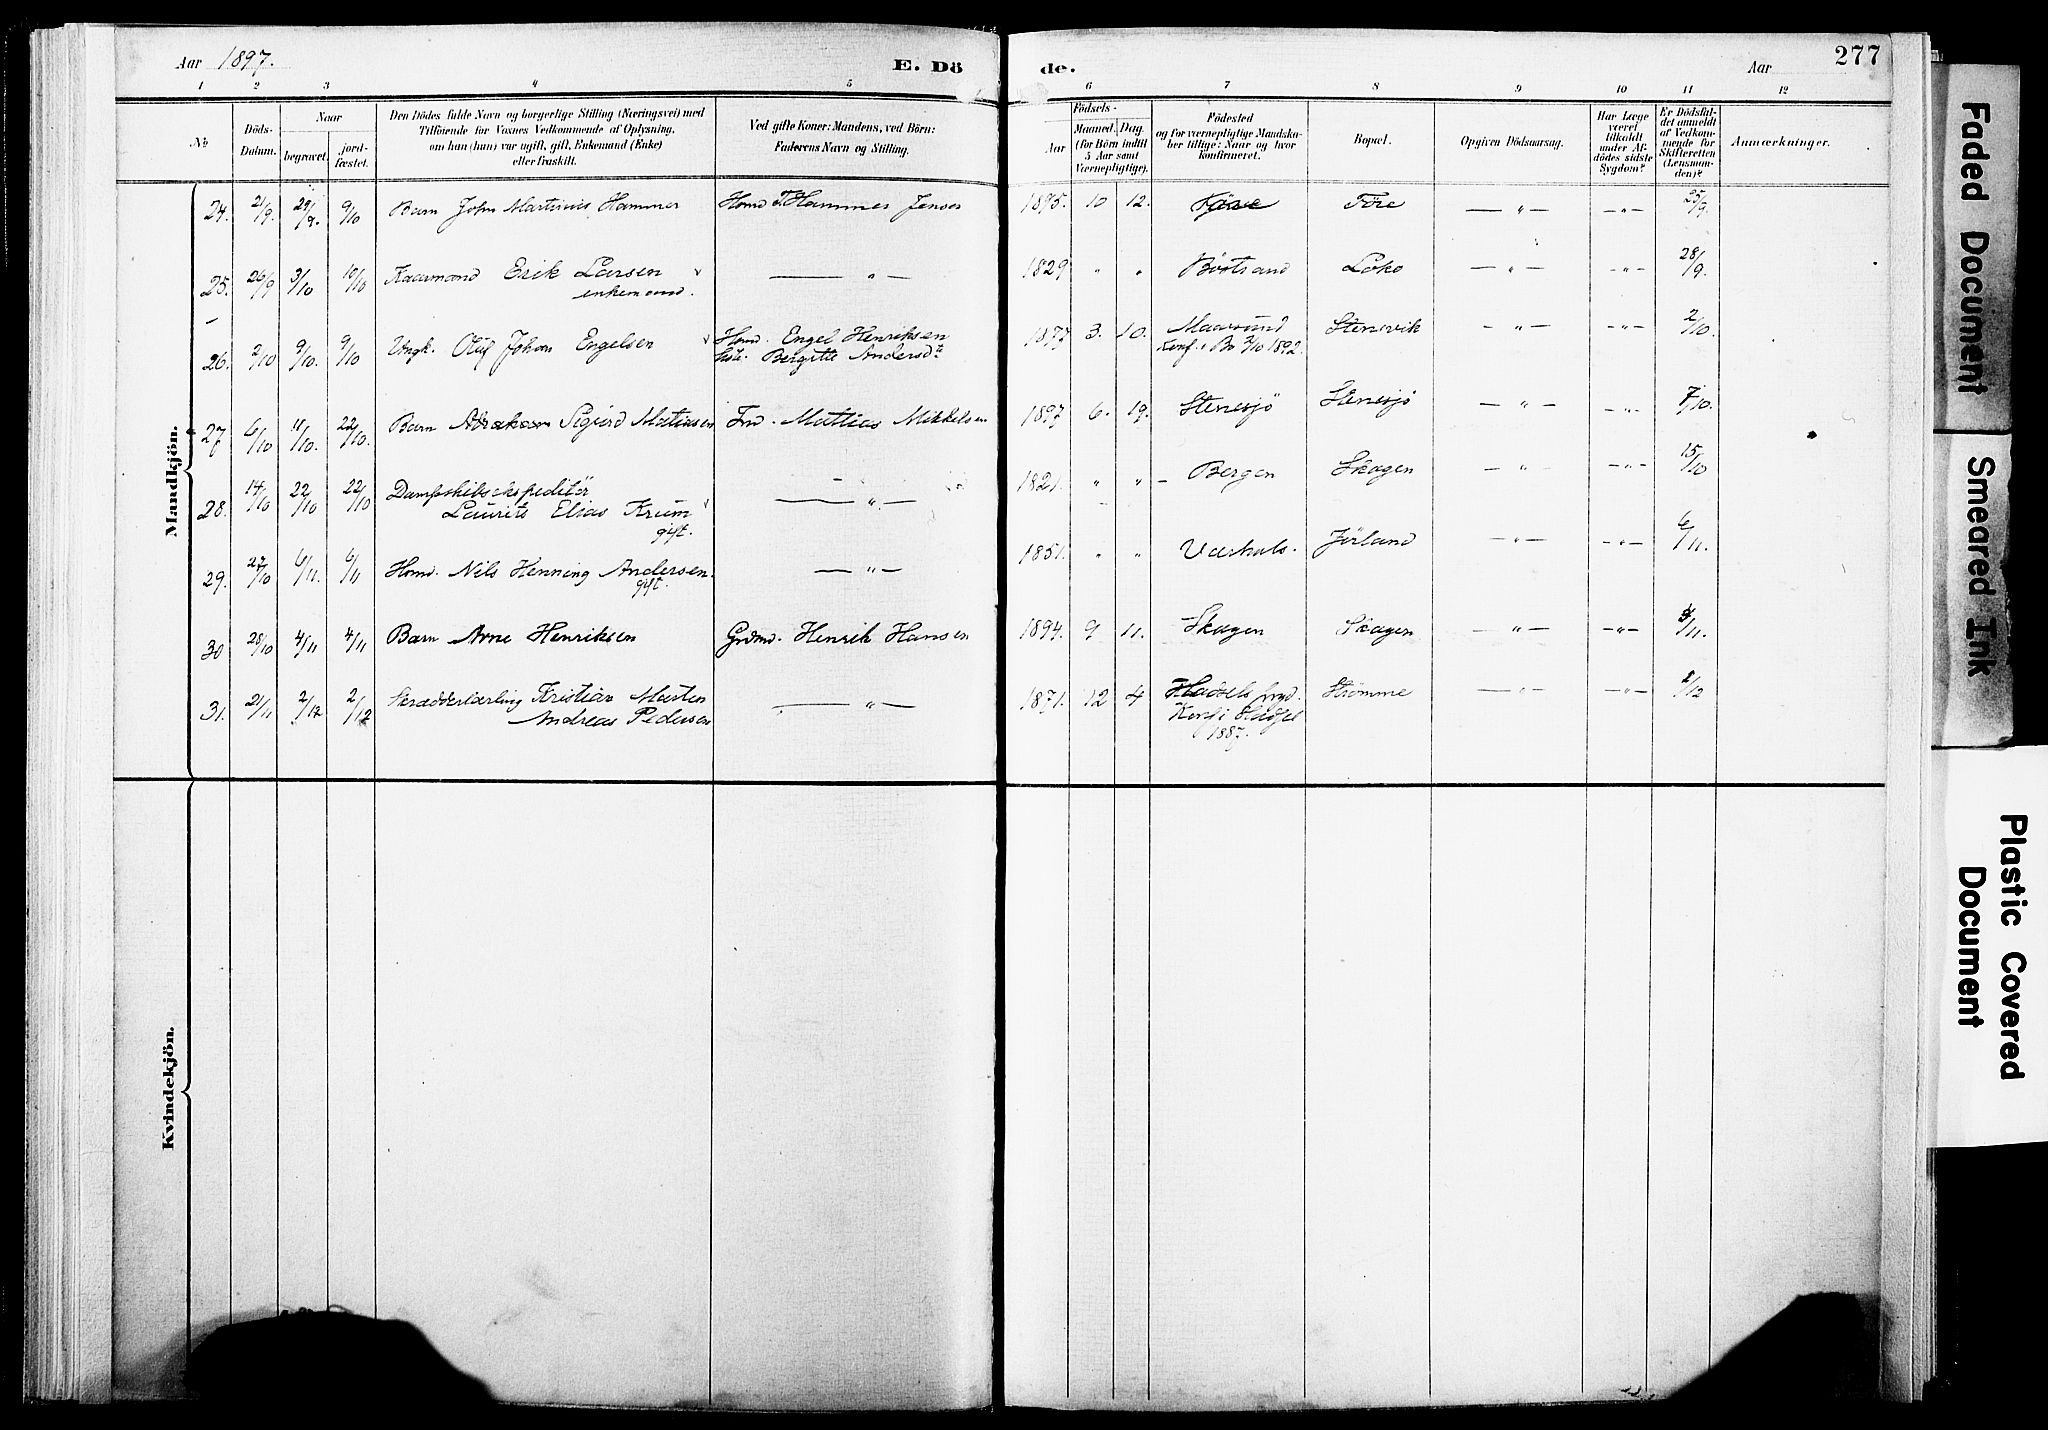 Aar 1897.
E. Dö
de.
Aar
277
1 2 3 4 5 6 7 8 9 10 11 12
No
Döds-
Datum.
Naar
begravet.
jord-
fæstet.
Den Dödes fulde Navn og borgerlige Stilling (Næringsvei) med
Tilföiende for Voxnes Vedkommende af Oplysning,
om han (hun) var ugift, gift, Enkemand (Enke)
eller fraskilt.
Ved gifte Koner: Mandens, ved Börn:
Faderens Navn og Stilling.
Födsels-
Aar
Maaned. Dag.
(for Börn indtil
5 Aar samt
Værnepligtige).
Födested
og for værnepligtige Mandska-
ber tillige: Naar og hvor
Konfirmeret.
Bopæl.
Opgiven Dödsaarsag.
Har Læge
været
tilkaldt
under Af-
dödes sidste
Sygdom?
Er Dödsfal-
det anmeldt
af Vedkom-
mende for
Skifteretten
(Lensman-
den)?
Anmærkninger.
Mandkjön.
24. 21/9. 29/9. 9/10 Barn John Martinus Hammer Hmd T. Hammer Jensen 1895. 10 12. Före — " — — " — 25/9.
25. 26/9 3/10 10/10 Kaarmand Erik Larsen — " — 1829 " " Böstrand — " — — " — 28/9.
enkemand.
26. 2/10 9/10. 9/10 Ungk. Oluf Johan Engelsen Hmd. Engel Henriksen 1877 3. 10. Stensvik — " — — " — 2/10.
Bergitte Andersdtr
Konf. i Bö 2/10 1892.
27 6/10 11/10. 22/10. Barn Abraham Sigurd Matiasen Fmd. Mattias Mikkelsen 1897 6. 19. Stenesjö Stenesjö — " — — " — 7/10.
28. 14/10 22/10 22/10 Dampskibsekspeditör — " — 1821. " " Bergen Skagen — " — — " — 15/10
Laurits Elias Krum
gift.
29. 27/10 6/11. 6/11 Hmd. Nils Henning Andersen. — " — 1851. " " Jörland — " — — " — 6/11.
gift.
30 28/10 4/11 4/11 Barn Arne Henriksen Grdmd. Henrik Hansen 1894. 9 11. Skagen Skagen — " — — " —
31. 21/11 2/12 2/12 Skrædderlærling Kristian Morten — " — 1871. 12 4 Hadsels Strömme — " — — " —
Andreas Pedersen
Konf. i Hadsel
1887.
Kvindekjön.
Faded Document
Smeared Ink
Plastic Covered
Document